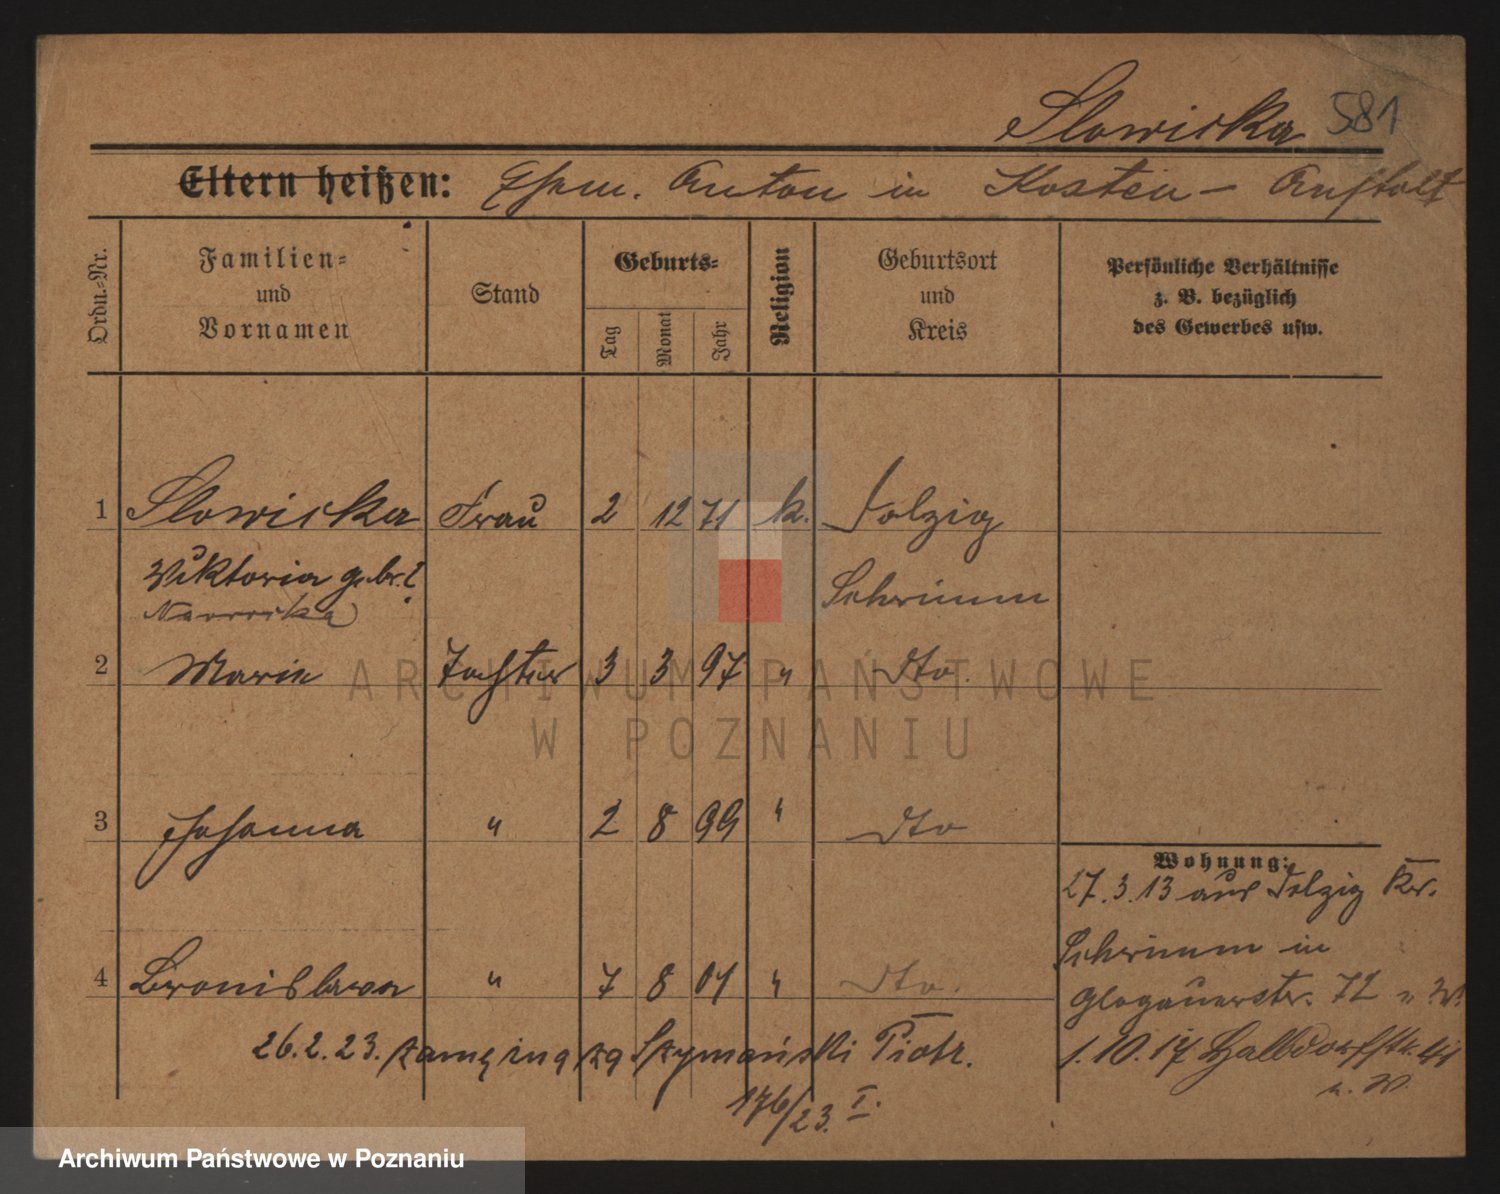 Slowicka 581
Eltern heißen: Ehem. Anton in Kosten - Anstalt
Ordn.-Nr.
Familien-
und
Vornamen
Stand
Geburts-
Tag
Monat
Jahr
Religion
Geburtsort
und
Kreis
Persönliche Verhältnisse
z. B. bezüglich
des Gewerbes usw.
1 Slowicka Frau 2 12 71 k. Dolzig
Viktoria geb. ? Schrimm
2 Marie Tochter 3 3 97 " dto.
3 Johanna " 2 8 99 " dto
Wohnung:
27.3.13 aus Dolzig Kr.
Schrimm in
Glogauerstr. 72 n. W.
4 Bronislawa " 7 8 01 " dto.
1.10.17 Halbdorfstr.
n. W.
26.2.23. zamężna za Szymański Piotr.
176/23. I.
ARCHIWUM PAŃSTWOWE
W POZNANIU
Archiwum Państwowe w Poznaniu